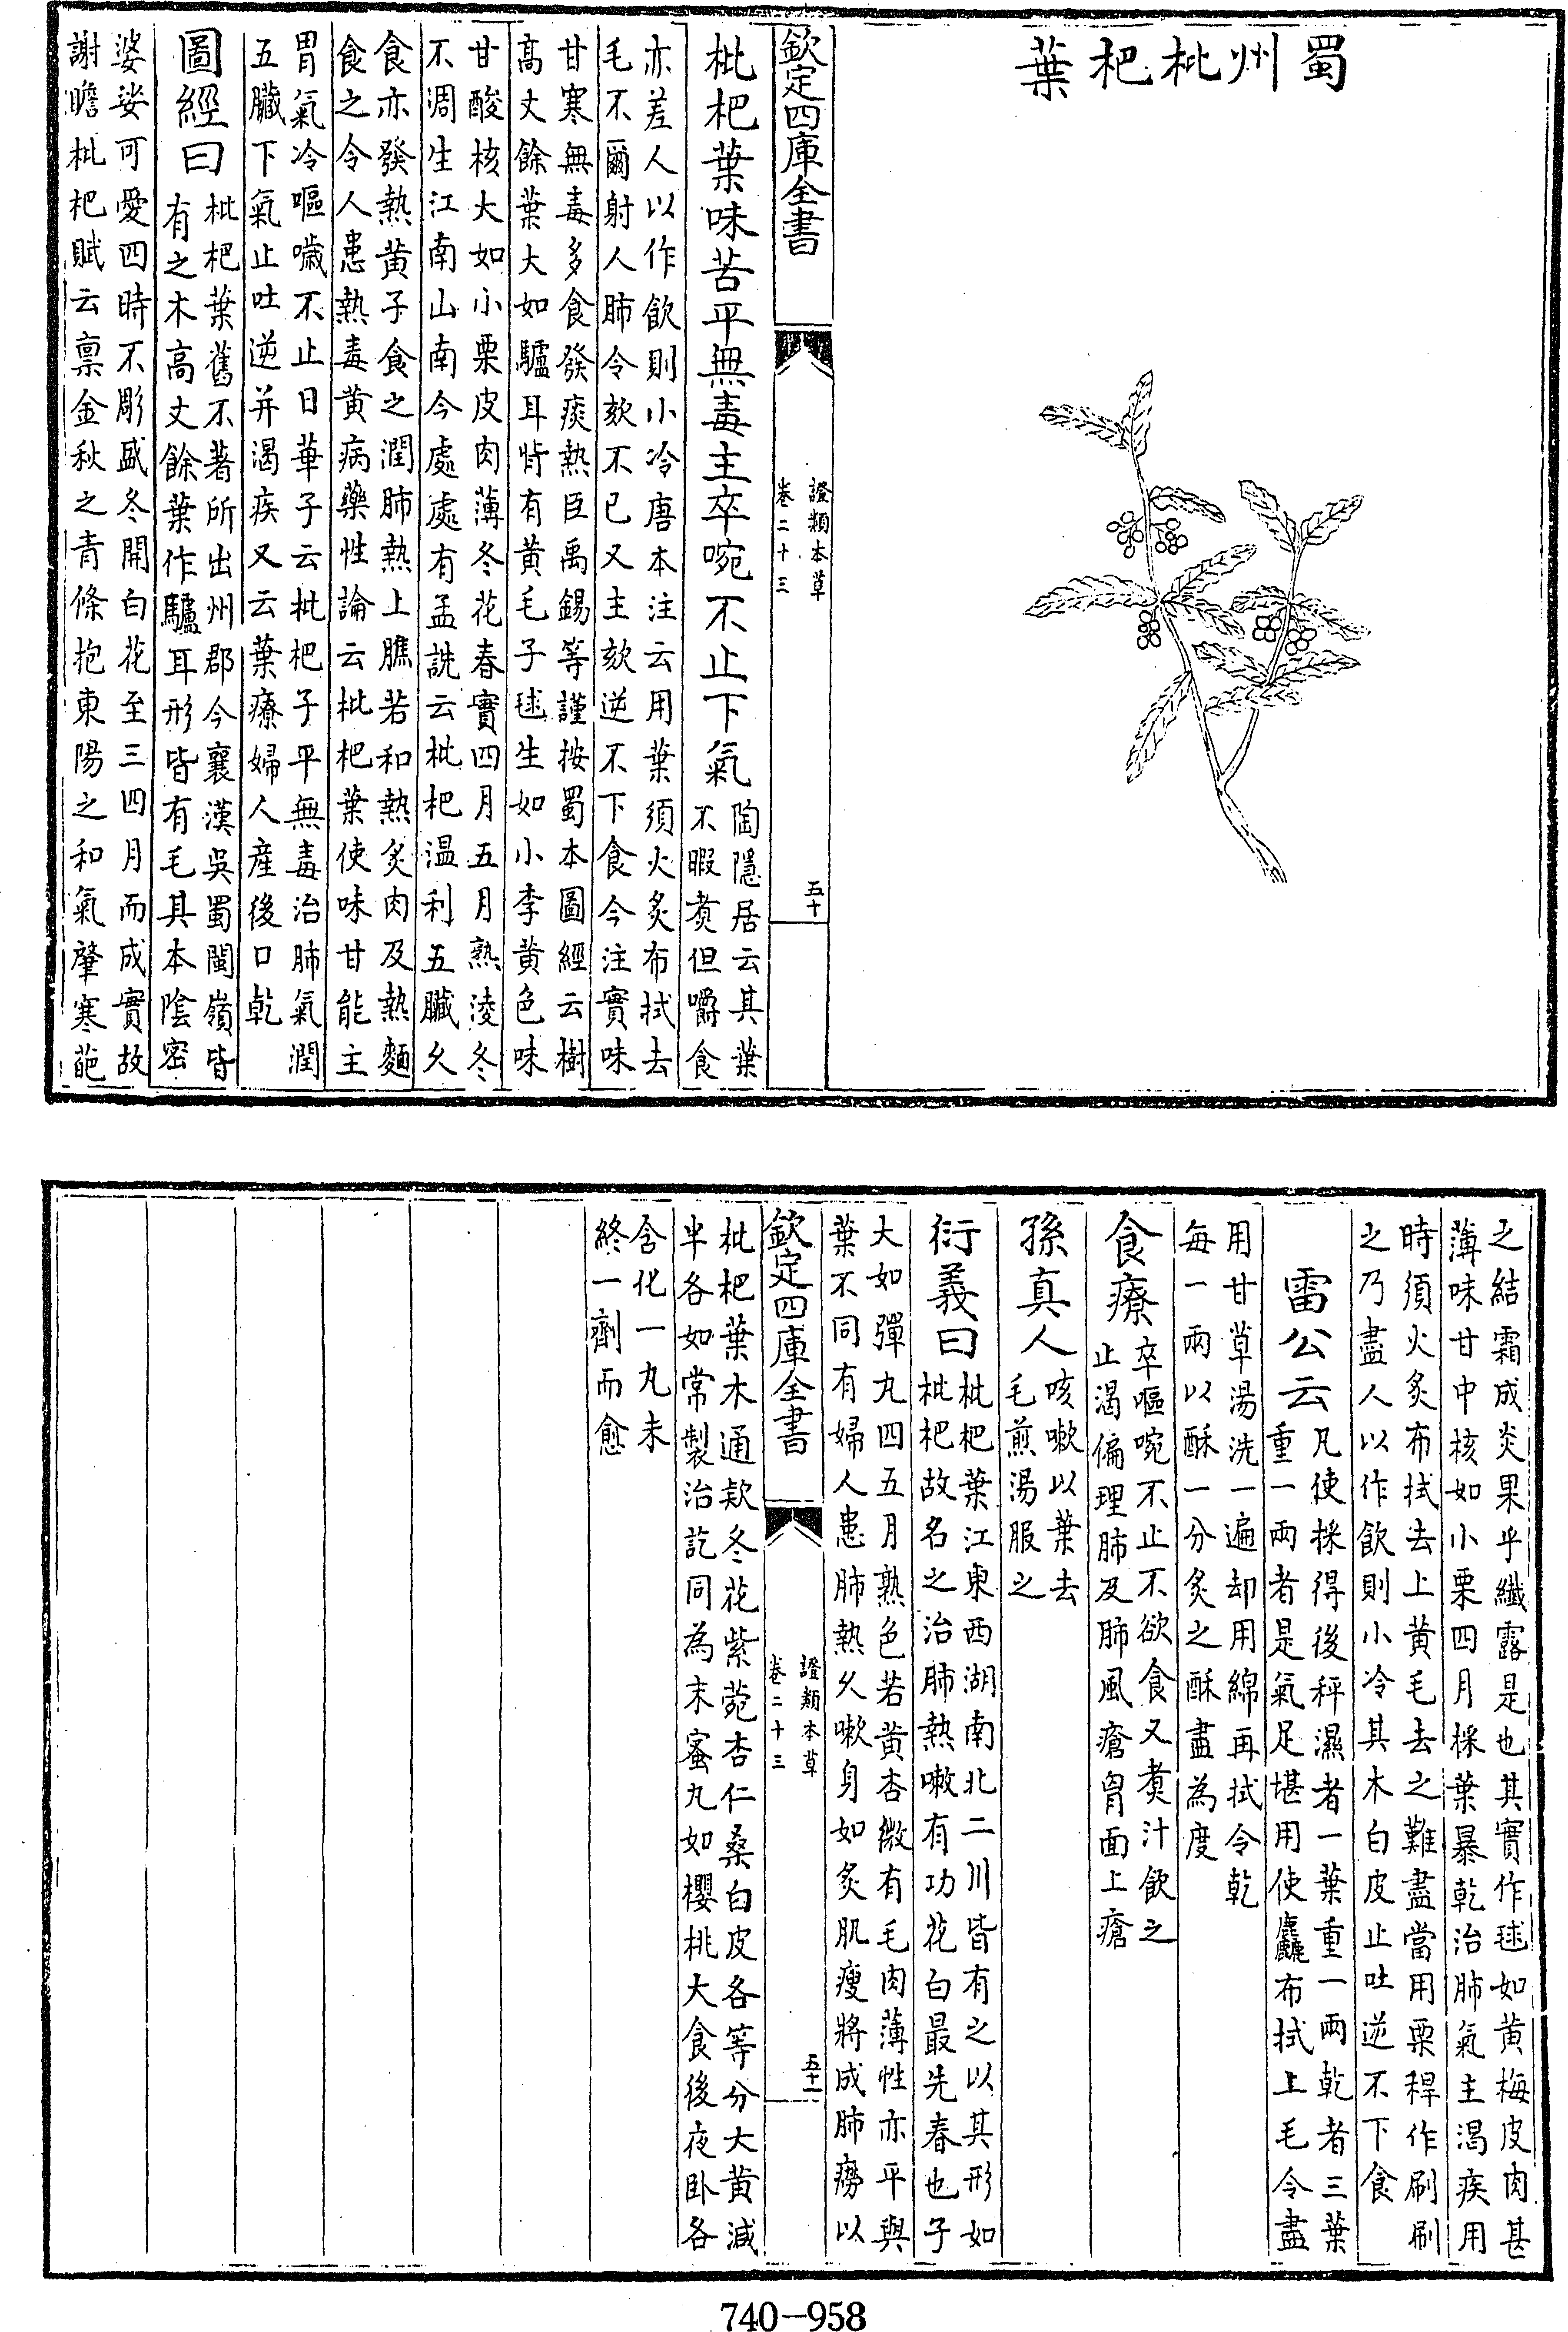 蜀州枇杷葉
欽定四庫全書
證類本草
卷二十三
五十
枇杷葉味苦平無毒主卒啘不止下氣
陶隱居云其葉
不暇煑但嚼食
亦差人以作飲則小冷唐本注云用葉須火炙布拭去
毛不爾射人肺令欬不已又主欬逆不下食今注實味
甘寒無毒多食發痰熱臣禹錫等謹按蜀本圖經云樹
高丈餘葉大如驢耳背有黄毛子毬生如小李黄色味
甘酸核大如小栗皮肉薄冬花春實四月五月熟淩冬
不凋生江南山南今處處有孟詵云枇杷温利五臟久
食亦發熱黄子食之潤肺熱上膲若和熱炙肉及熱麵
食之令人患熱毒黄病藥性論云枇杷葉使味甘能主
胃氣冷嘔噦不止日華子云枇杷子平無毒治肺氣潤
五臟下氣止吐逆并渴疾又云葉療婦人産後口乾
圖經曰
枇杷葉舊不著所出州郡今襄漢吳蜀閩嶺皆
有之木高丈餘葉作驢耳形皆有毛其本陰密
婆娑可愛四時不彫盛冬開白花至三四月而成實故
謝瞻枇杷賦云禀金秋之青條抱東陽之和氣肇寒葩
之結霜成炎果乎纖露是也其實作毬如黄梅皮肉甚
薄味甘中核如小栗四月採葉暴乾治肺氣主渴疾用
時須火炙布拭去上黄毛去之難盡當用粟稈作刷刷
之乃盡人以作飲則小冷其木白皮止吐逆不下食
雷公云
凡使採得後秤濕者一葉重一兩乾者三葉
重一兩者是氣足堪用使麤布拭上毛令盡
用甘草湯洗一遍却用綿再拭令乾
每一兩以酥一分炙之酥盡為度
食療
卒嘔啘不止不欲食又煑汁飲之
止渴偏理肺及肺風瘡胷面上瘡
孫真人
咳嗽以葉去
毛煎湯服之
衍義曰
枇杷葉江東西湖南北二川皆有之以其形如
枇杷故名之治肺熱嗽有功花白最先春也子
大如彈丸四五月熟色若黄杏微有毛肉薄性亦平與
葉不同有婦人患肺熱久嗽身如炙肌瘦將成肺癆以
欽定四庫全書
證類本草
卷二十三
五十一
枇杷葉木通欵冬花紫菀杏仁桑白皮各等分大黄減
半各如常製治訖同為末蜜丸如櫻桃大食後夜卧各
含化一丸未
終一劑而愈
740-958